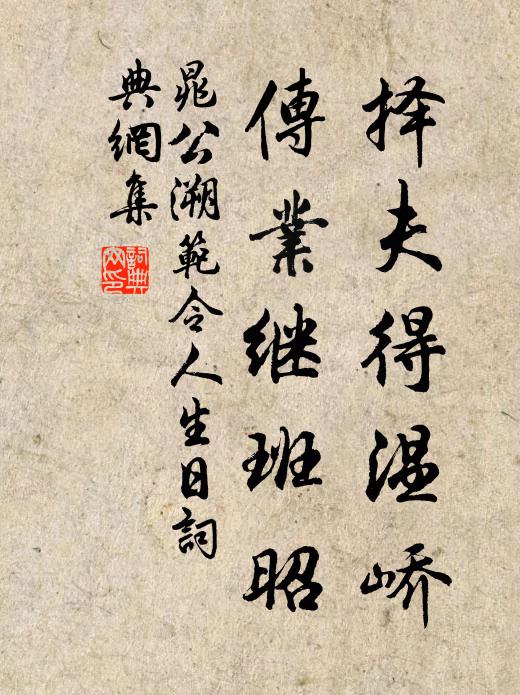 择夫得温峤
傳業继班昭
晁公溯範令人生日詞
典網集
詞典文印